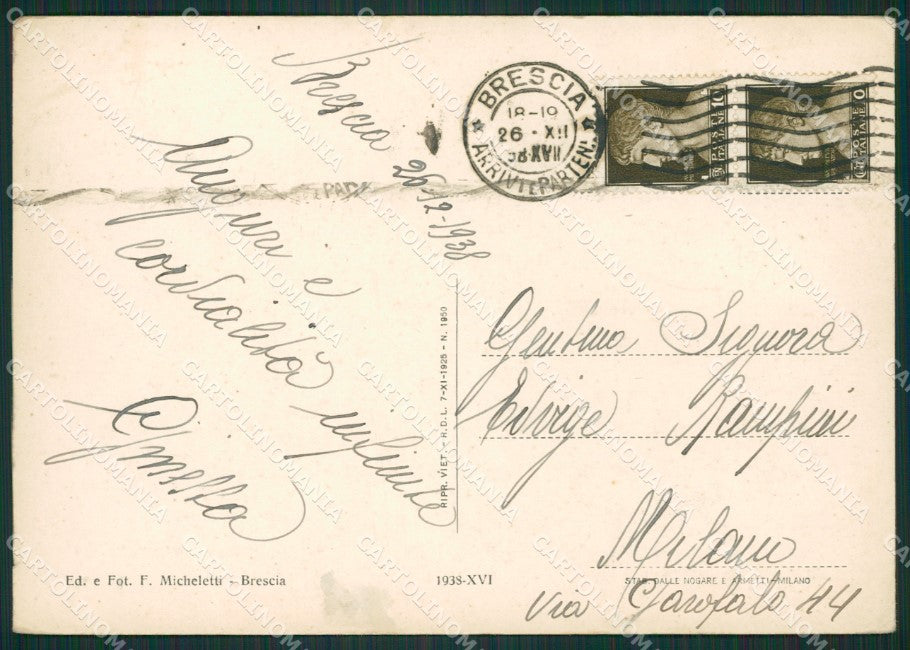 Brescia
26-12-1938
Auguri e
cordialità infinite
BRESCIA
18-19
26 · XII
38·XVII
ARRIVI E PARTENZE
POSTE ITALIANE
POSTE ITALIANE
Gentma Signora
Edvige Rampini
Milano
Via Garofalo 44
RIPR. VIET. - R.D.L. 7-XI-1925 - N. 1950
Ed. e Fot. F. Micheletti - Brescia
1938-XVI
STAB. DALLE NOGARE E ARMETTI-MILANO
CARTOLINOMANIA